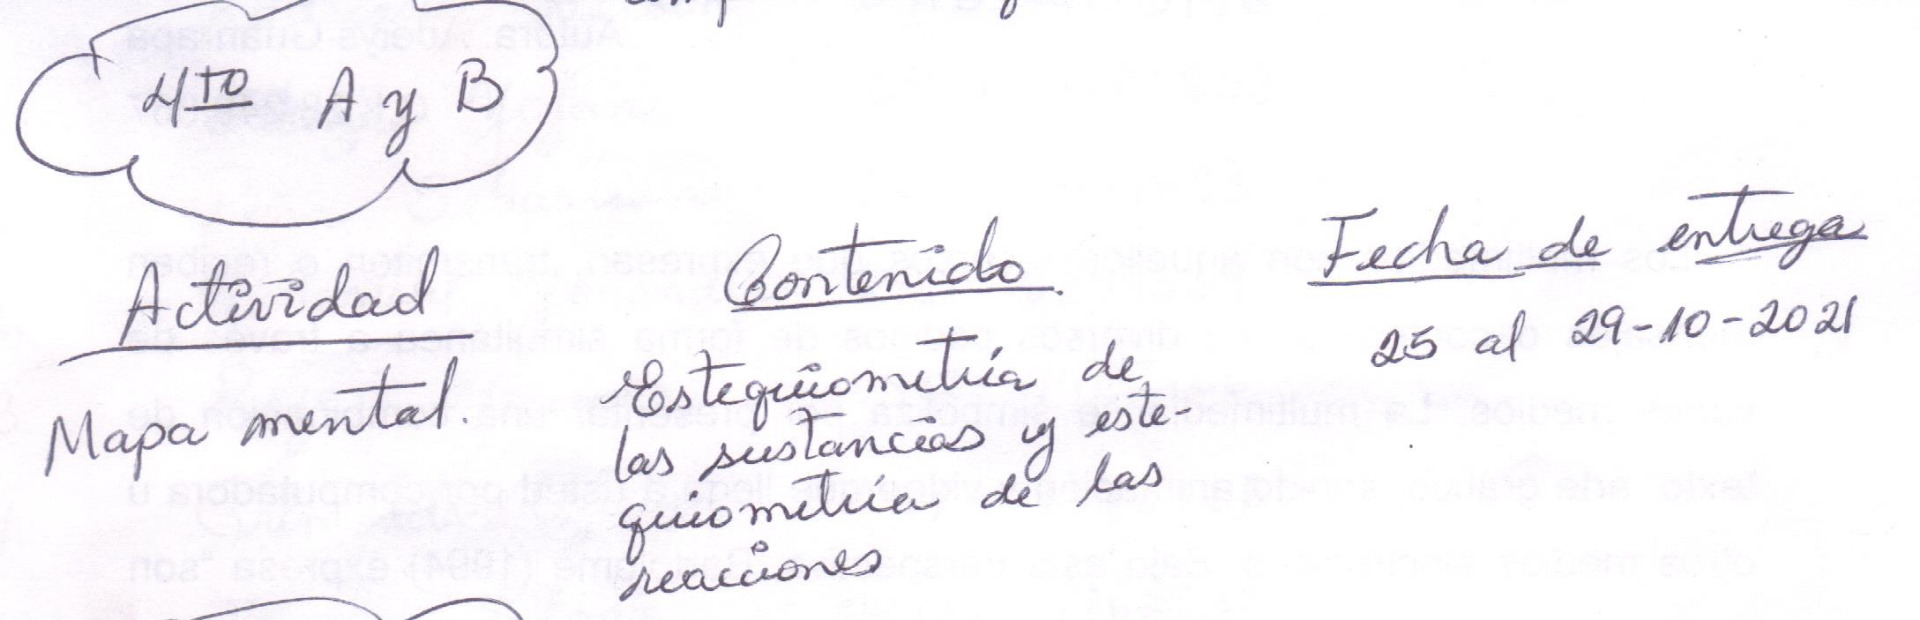 4to A y B
Actividad
Mapa mental.
Contenido.
Estequiometría de
las sustancias y este-
quiometría de las
reacciones
Fecha de entrega
25 al 29-10-2021